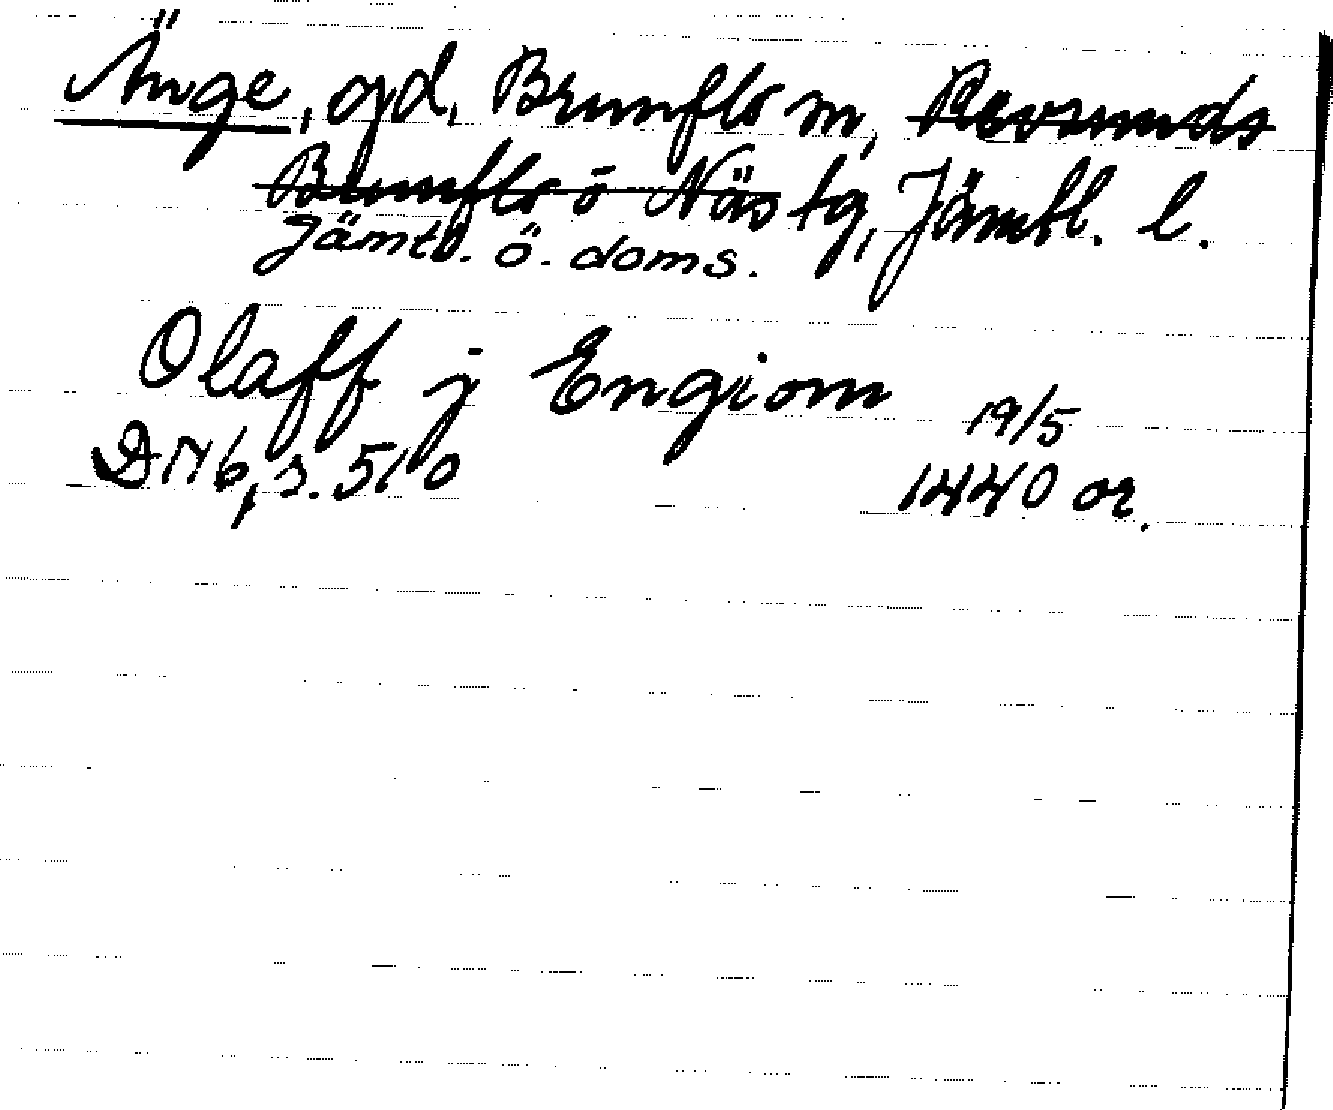 Änge, gd, Brunflo sn, Revsunds
Brunflo o Näs tg, Jämtl. l.
Jämtl. ö. doms.
Olaff j Engiom
19/5
DN 6, s. 510 1440 or.